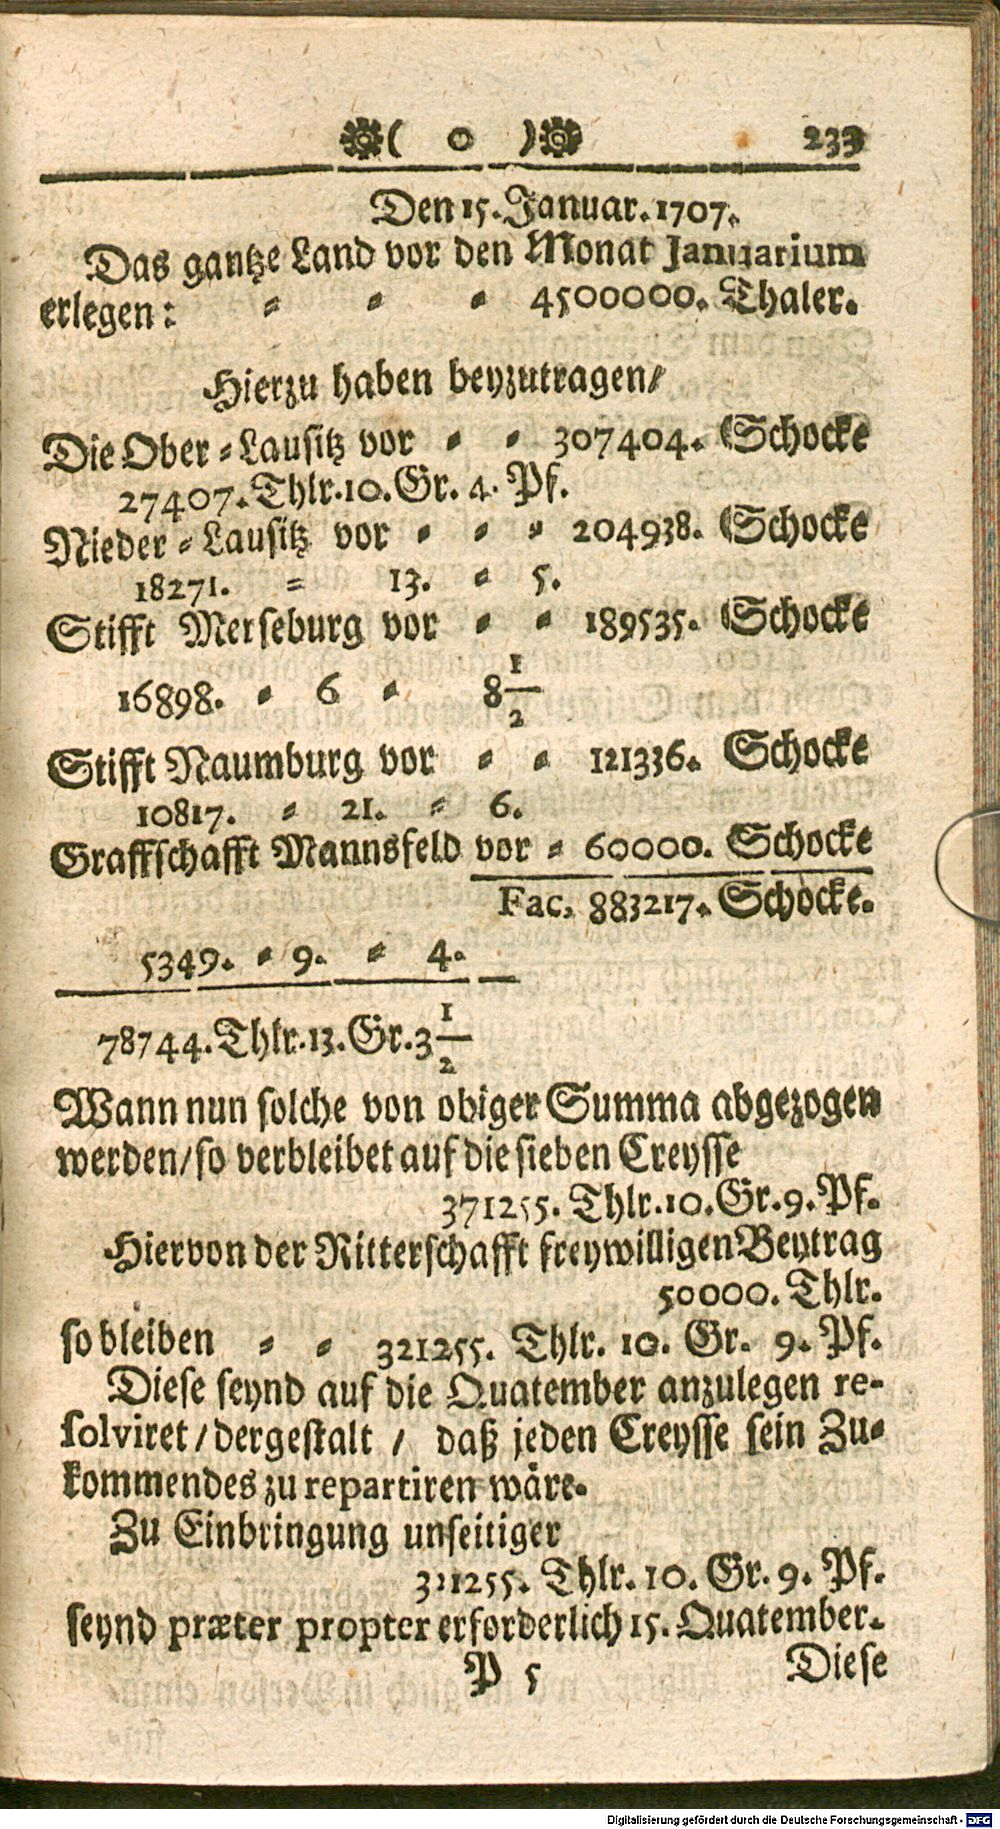 ( o ) 233
Den 15. Januar. 1707.
Das gantze Land vor den Monat Januarium
erlegen: = = = 4500000. Thaler.
Hierzu haben beyzutragen/
Die Ober-Lausitz vor = = 307404. Schocke
27407. Thlr. 10. Gr. 4. Pf.
Nieder-Lausitz vor = = = 204938. Schocke
18271. = 13. = 5.
Stifft Merseburg vor = = 189535. Schocke
16898. = 6 = 8 1/2
Stifft Naumburg vor = = 121336. Schocke
10817. = 21. = 6.
Graffschafft Mannsfeld vor = 60000. Schocke
Fac, 883217. Schocke.
5349. = 9. = 4.
78744. Thlr. 13. Gr. 3 1/2
Wann nun solche von obiger Summa abgezogen
werden/ so verbleibet auf die sieben Creysse
371255. Thlr. 10. Gr. 9. Pf.
Hiervon der Ritterschafft freywilligen Beytrag
50000. Thlr.
so bleiben = = 321255. Thlr. 10. Gr. 9. Pf.
Diese seynd auf die Quatember anzulegen re-
solviret / dergestalt / daß jeden Creysse sein Zu-
kommendes zu repartiren wäre.
Zu Einbringung unseitiger
321255. Thlr. 10. Gr. 9. Pf.
seynd præter propter erforderlich 15. Quatember.
P 5 Diese
Digitalisierung gefördert durch die Deutsche Forschungsgemeinschaft - DFG